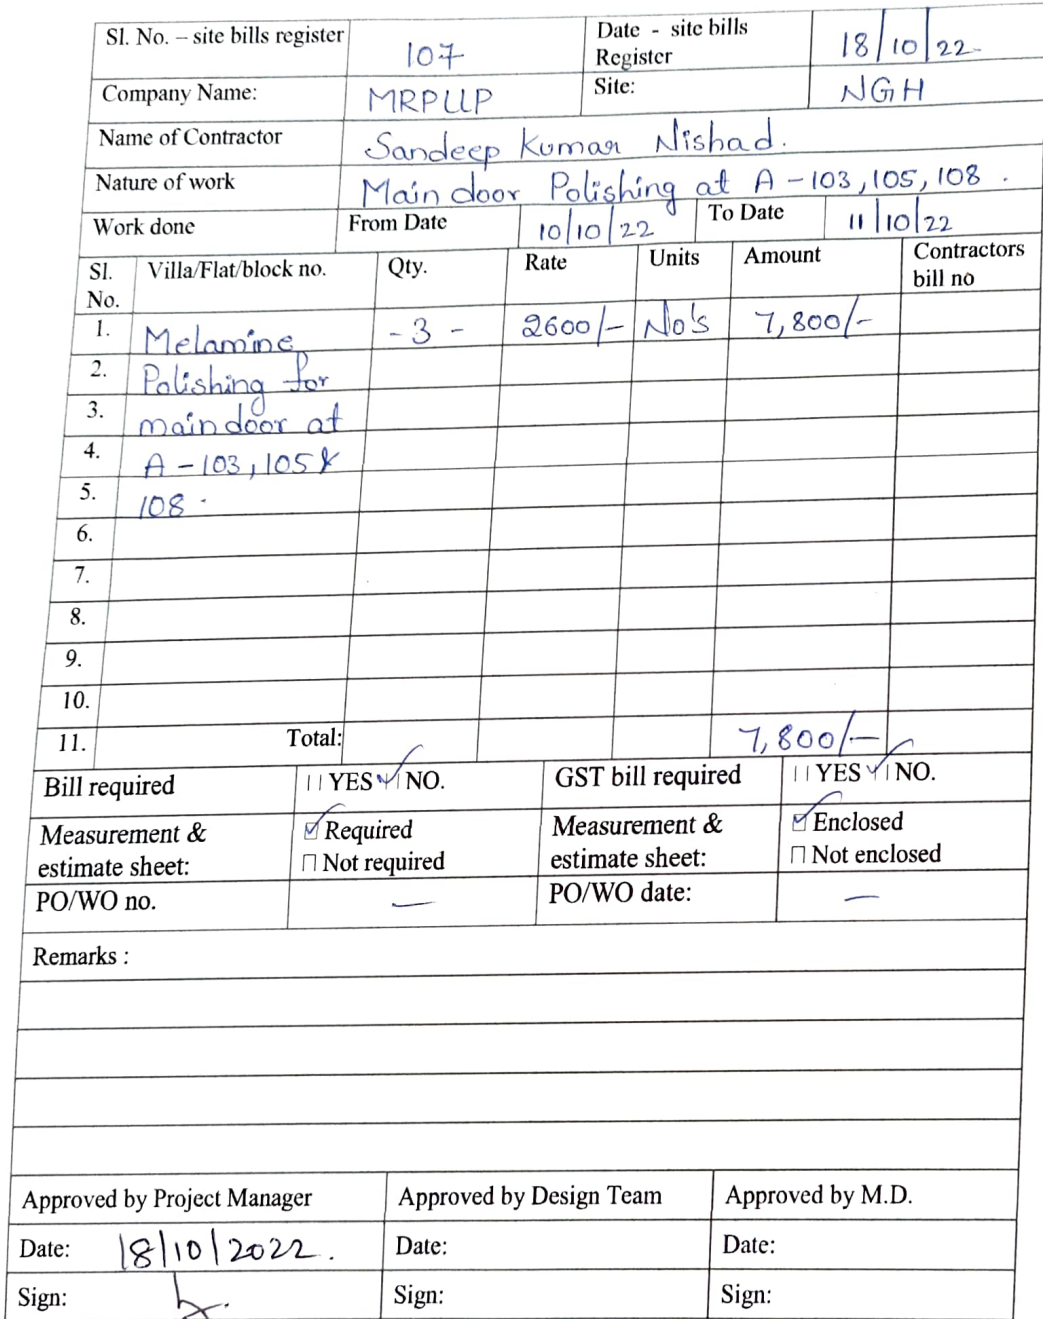 Sl. No. – site bills register 107 Date - site bills Register 18/10/22
Company Name: MRPLLP Site: NGH
Name of Contractor Sandeep Kumar Nishad.
Nature of work Main door Polishing at A-103,105,108.
Work done From Date 10/10/22 To Date 11/10/22
Sl. No. Villa/Flat/block no. Qty. Rate Units Amount Contractors bill no
1. Melamine - 3 - 2600/- No's 7,800/-
2. Polishing for
3. main door at
4. A-103,105 &
5. 108.
6.
7.
8.
9.
10.
11. Total: 7,800/-
Bill required YES ✓ NO. GST bill required YES ✓ NO.
Measurement & estimate sheet: ☑ Required Measurement & estimate sheet: ☑ Enclosed
☐ Not required ☐ Not enclosed
PO/WO no. — PO/WO date: —
Remarks :
Approved by Project Manager Approved by Design Team Approved by M.D.
Date: 18/10/2022. Date: Date:
Sign: Sign: Sign: